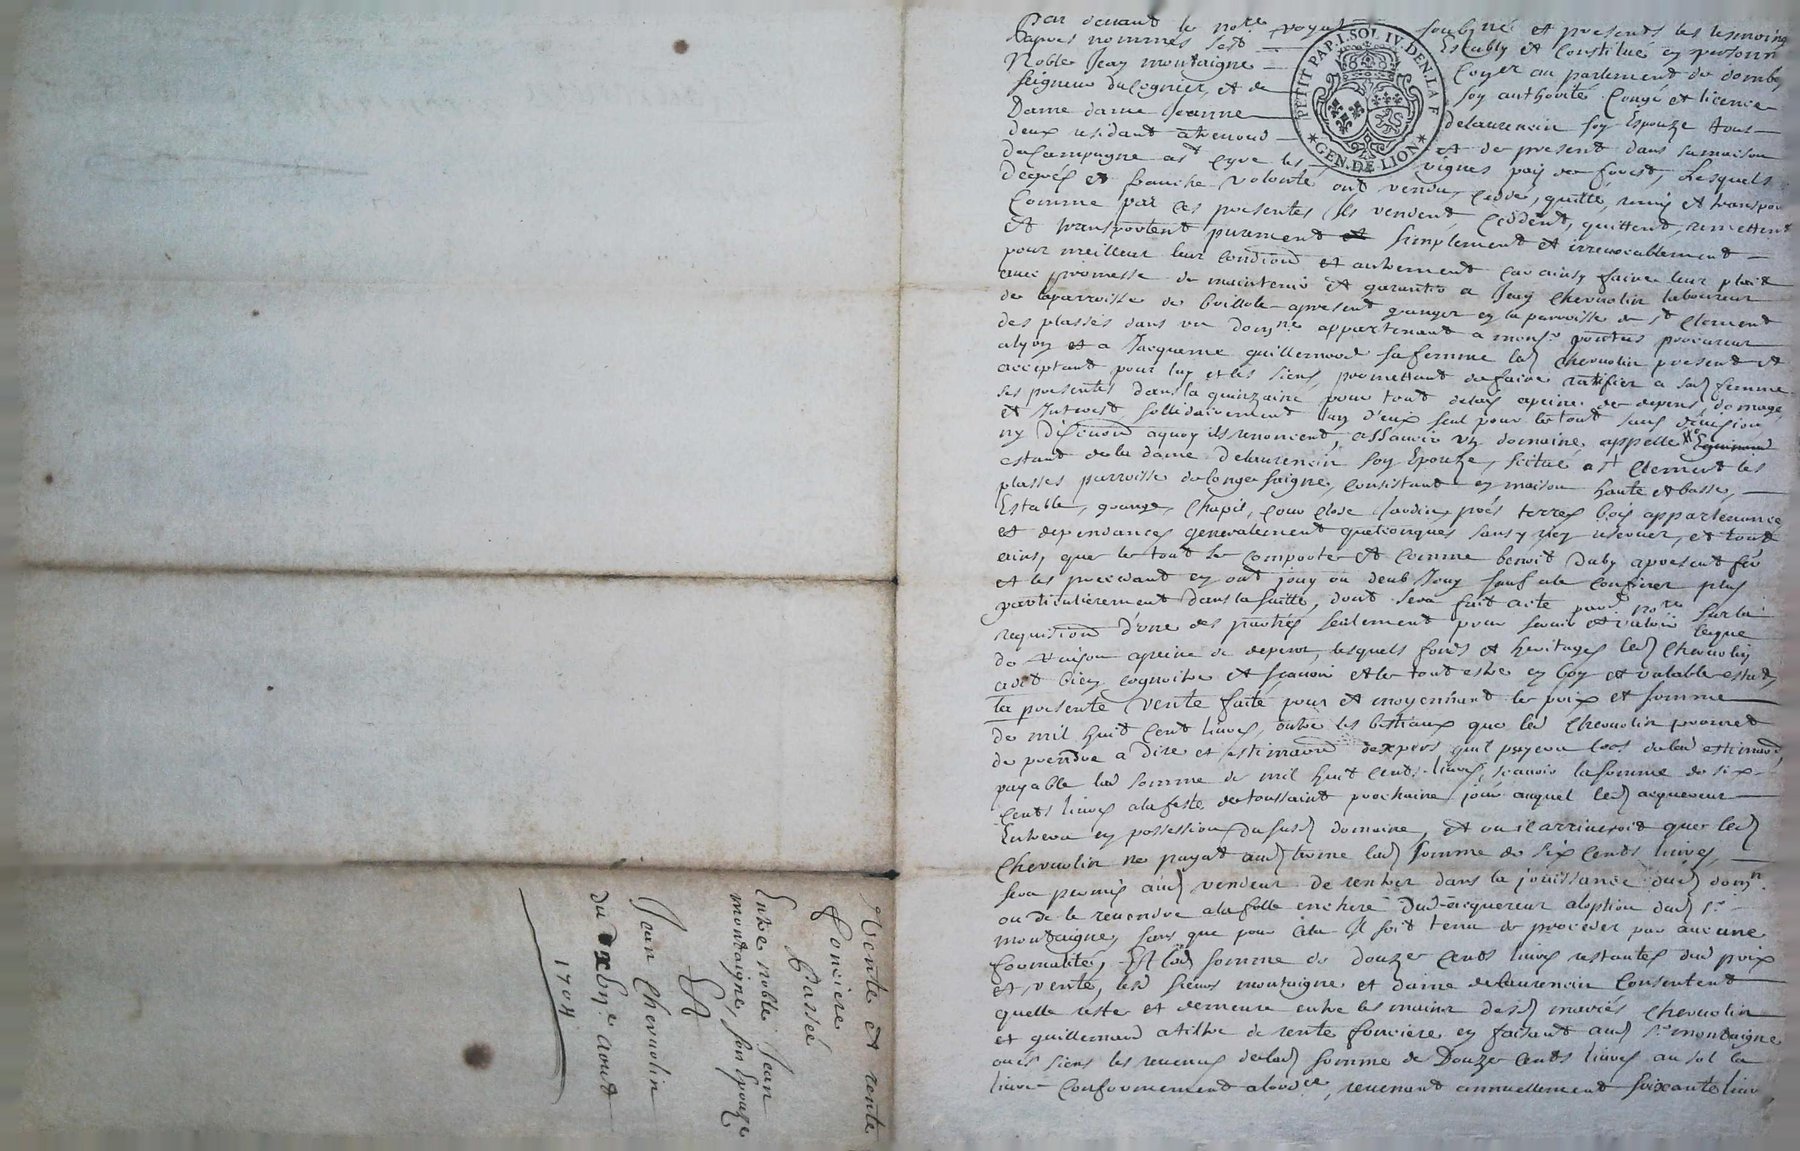 Par devant le no.re royal soubsigné et presents les tesmoing
bapres nommés sest Estably et Constitué en personn
Noble Jean montaigne Coyer au parlement de domb
seigneur du Cognier, et de soy authorité Congé et licence
Dame dame Jeanne delaurencin soy Espouze tous
deux residant a trevoux et de present dans sa maison
de Campagne a St Cyre les vignes pay de forest, Lesquels
degrés et franche volonté ont vendu, cedde, quitté, remis et transpor
Comme par Ces presentes ils vendent Ceddent, quittent, remettent
et transportent purement et simplement et irrevocablement
pour meilleur leur Condition et autrement Car ainsy faire leur plait
avec promesse de maintenir et garantir a Jean Chervolin laboureur
de laparroisse de boillole apresent granger en la parroisse de St Clement
des plasses dans un dom.ne appartenant a mons.r pontus procureur
alyon et a Jacqueme guillermond sa femme led Chervolin present et
acceptant pour luy et les siens, promettant de faire ratifier a sad femme
ses presentes dans la quinzaine pour tout delay apeine de depens, domage
et Interest sollidairement lun d'eux seul pour le tout sans division
ny discution aquoy ils renoncent, assavoir un domaine appellé
estant de lad dame delaurencin soy Epouze, scitué a St Clement les
plasses parroisse delonge saigne, Consistant en maison haute et basse,
Estable, grange, Chapis, Cour Close Jardin, prés terres bois appartenance
et dependances generalement quelconques sans y rien reserver, et tout
ains, que le tout se Comporte et Comme benoit Duby apresent
et les precedant en ont jouy ou deub Jouy sauf ale Confiner plus
particulierement dans la suitte, dont sera fait acte par no.re sur la
requisition d'une des parties seulement pour servir et valoir Ceque
de raison apeine de depens, lesquels fonds et heritages led Chervolin
adit bien Cognoitre et scavoir et le tout estre en bon et valable estat,
la presente vente faite pour et moyennant le prix et somme
de mil huit Cent livres, outre les bestiaux que led Chervolin promet
de prendre a dire et estimation dexpers quil payera lors delad estimaon,
payable lad somme de mil huit Cents livres, scavoir la somme de six
Cents livres a la feste de toussaint prochaine jour auquel led acquereur
Entrera en possession du susd domaine, et ou il arriveroit que led
Chervolin ne payat aud terme lad somme de six Cents livres,
sera permis aud vendeur de rentrer dans la jouissance dud dom.ne
ou de le revendre a la folle enchere dud acquereur aloption dud s.r
montaigne, sans que pour Cela Il soit tenu de proceder par aucune
formalité, Et lad somme de douze Cents livres restantes dud prix
et vente, led sieurs montaigne et dame delaurencin Consentent
quelle reste et demeure entre les mains desd mariés Chervolin
et guillermond atiltre de rente fonciere en faisant aud s.r montaigne
oules siens les revenus delad somme de Douze Cents livres au sol la
livre Conformement alord.ce, revenant annuellement soixante livr
PETIT PAP. I. SOL IV. DEN. LA F
GEN. DE LION
Vente et rente
fonciere
Passée
Entre noble Jean
montaigne, son Epouze
Et
Jean Chervolin
aoust
1704